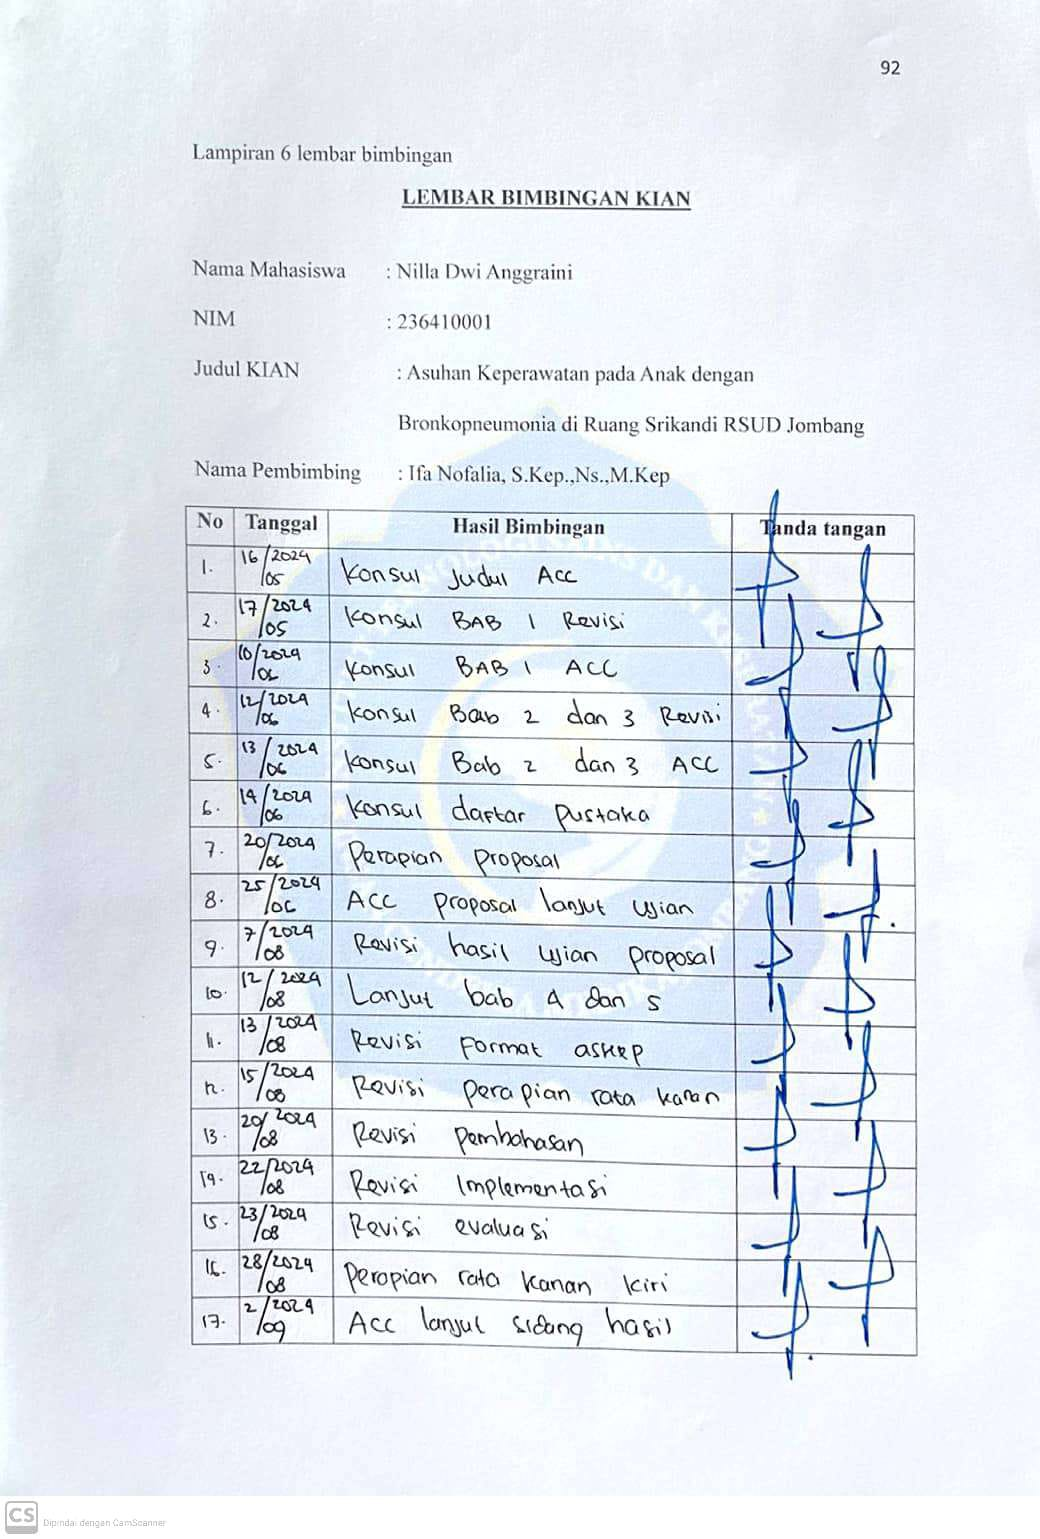 92
Lampiran 6 lembar bimbingan
LEMBAR BIMBINGAN KIAN
Nama Mahasiswa : Nilla Dwi Anggraini
NIM : 236410001
Judul KIAN : Asuhan Keperawatan pada Anak dengan
Bronkopneumonia di Ruang Srikandi RSUD Jombang
Nama Pembimbing : Ifa Nofalia, S.Kep.,Ns.,M.Kep
No Tanggal Hasil Bimbingan Tanda tangan
1. 16/2024/05 Konsul Judul Acc
2. 17/2024/05 Konsul BAB 1 Revisi
3. 10/2024/06 Konsul BAB 1 ACC
4. 12/2024/06 Konsul Bab 2 dan 3 Revisi
5. 13/2024/06 Konsul Bab 2 dan 3 ACC
6. 14/2024/06 Konsul daftar Pustaka
7. 20/2024/06 Perapian proposal
8. 25/2024/06 ACC proposal lanjut ujian
9. 7/2024/08 Revisi hasil ujian proposal
10. 12/2024/08 Lanjut bab 4 dan 5
11. 13/2024/08 Revisi Format askep
12. 15/2024/08 Revisi perapian rata kanan
13. 20/2024/08 Revisi pembahasan
14. 22/2024/08 Revisi Implementasi
15. 23/2024/08 Revisi evaluasi
16. 28/2024/08 Perapian rata kanan kiri
17. 2/2024/09 Acc lanjut sidang hasil
CS Dipindai dengan CamScanner